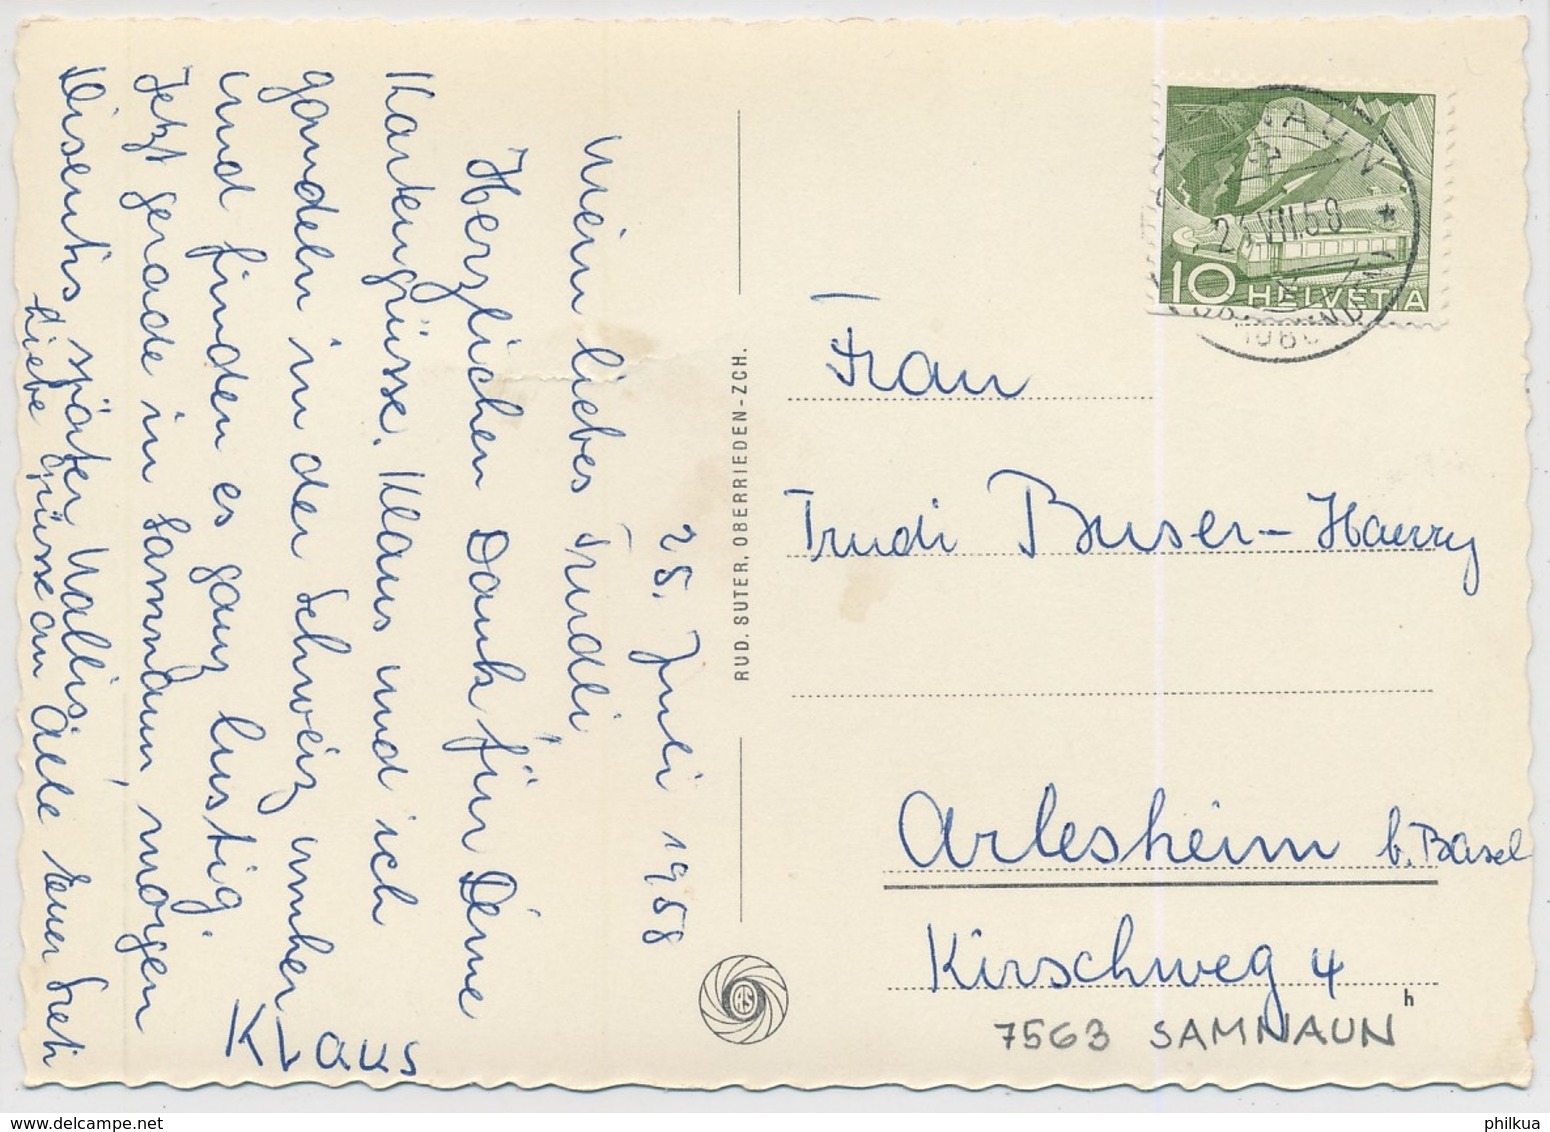 25. Juli 1958
Mein liebes Trudli,
Herzlichen Dank für Deine
Kartengrüsse. Klaus und ich
gondeln in der Schweiz umher
und finden es ganz lustig.
Jetzt gerade in Samnaun, morgen
Disentis, später Wallis,
Liebe Grüsse an Alle Euer
Klaus
RUD. SUTER, OBERRIEDEN-ZCH.
RS
10 HELVETIA
VII.58
Frau
Trudi Buser-Haerry
Arlesheim b. Basel
Kirschweg 4
h
7563 SAMNAUN
philkua.com